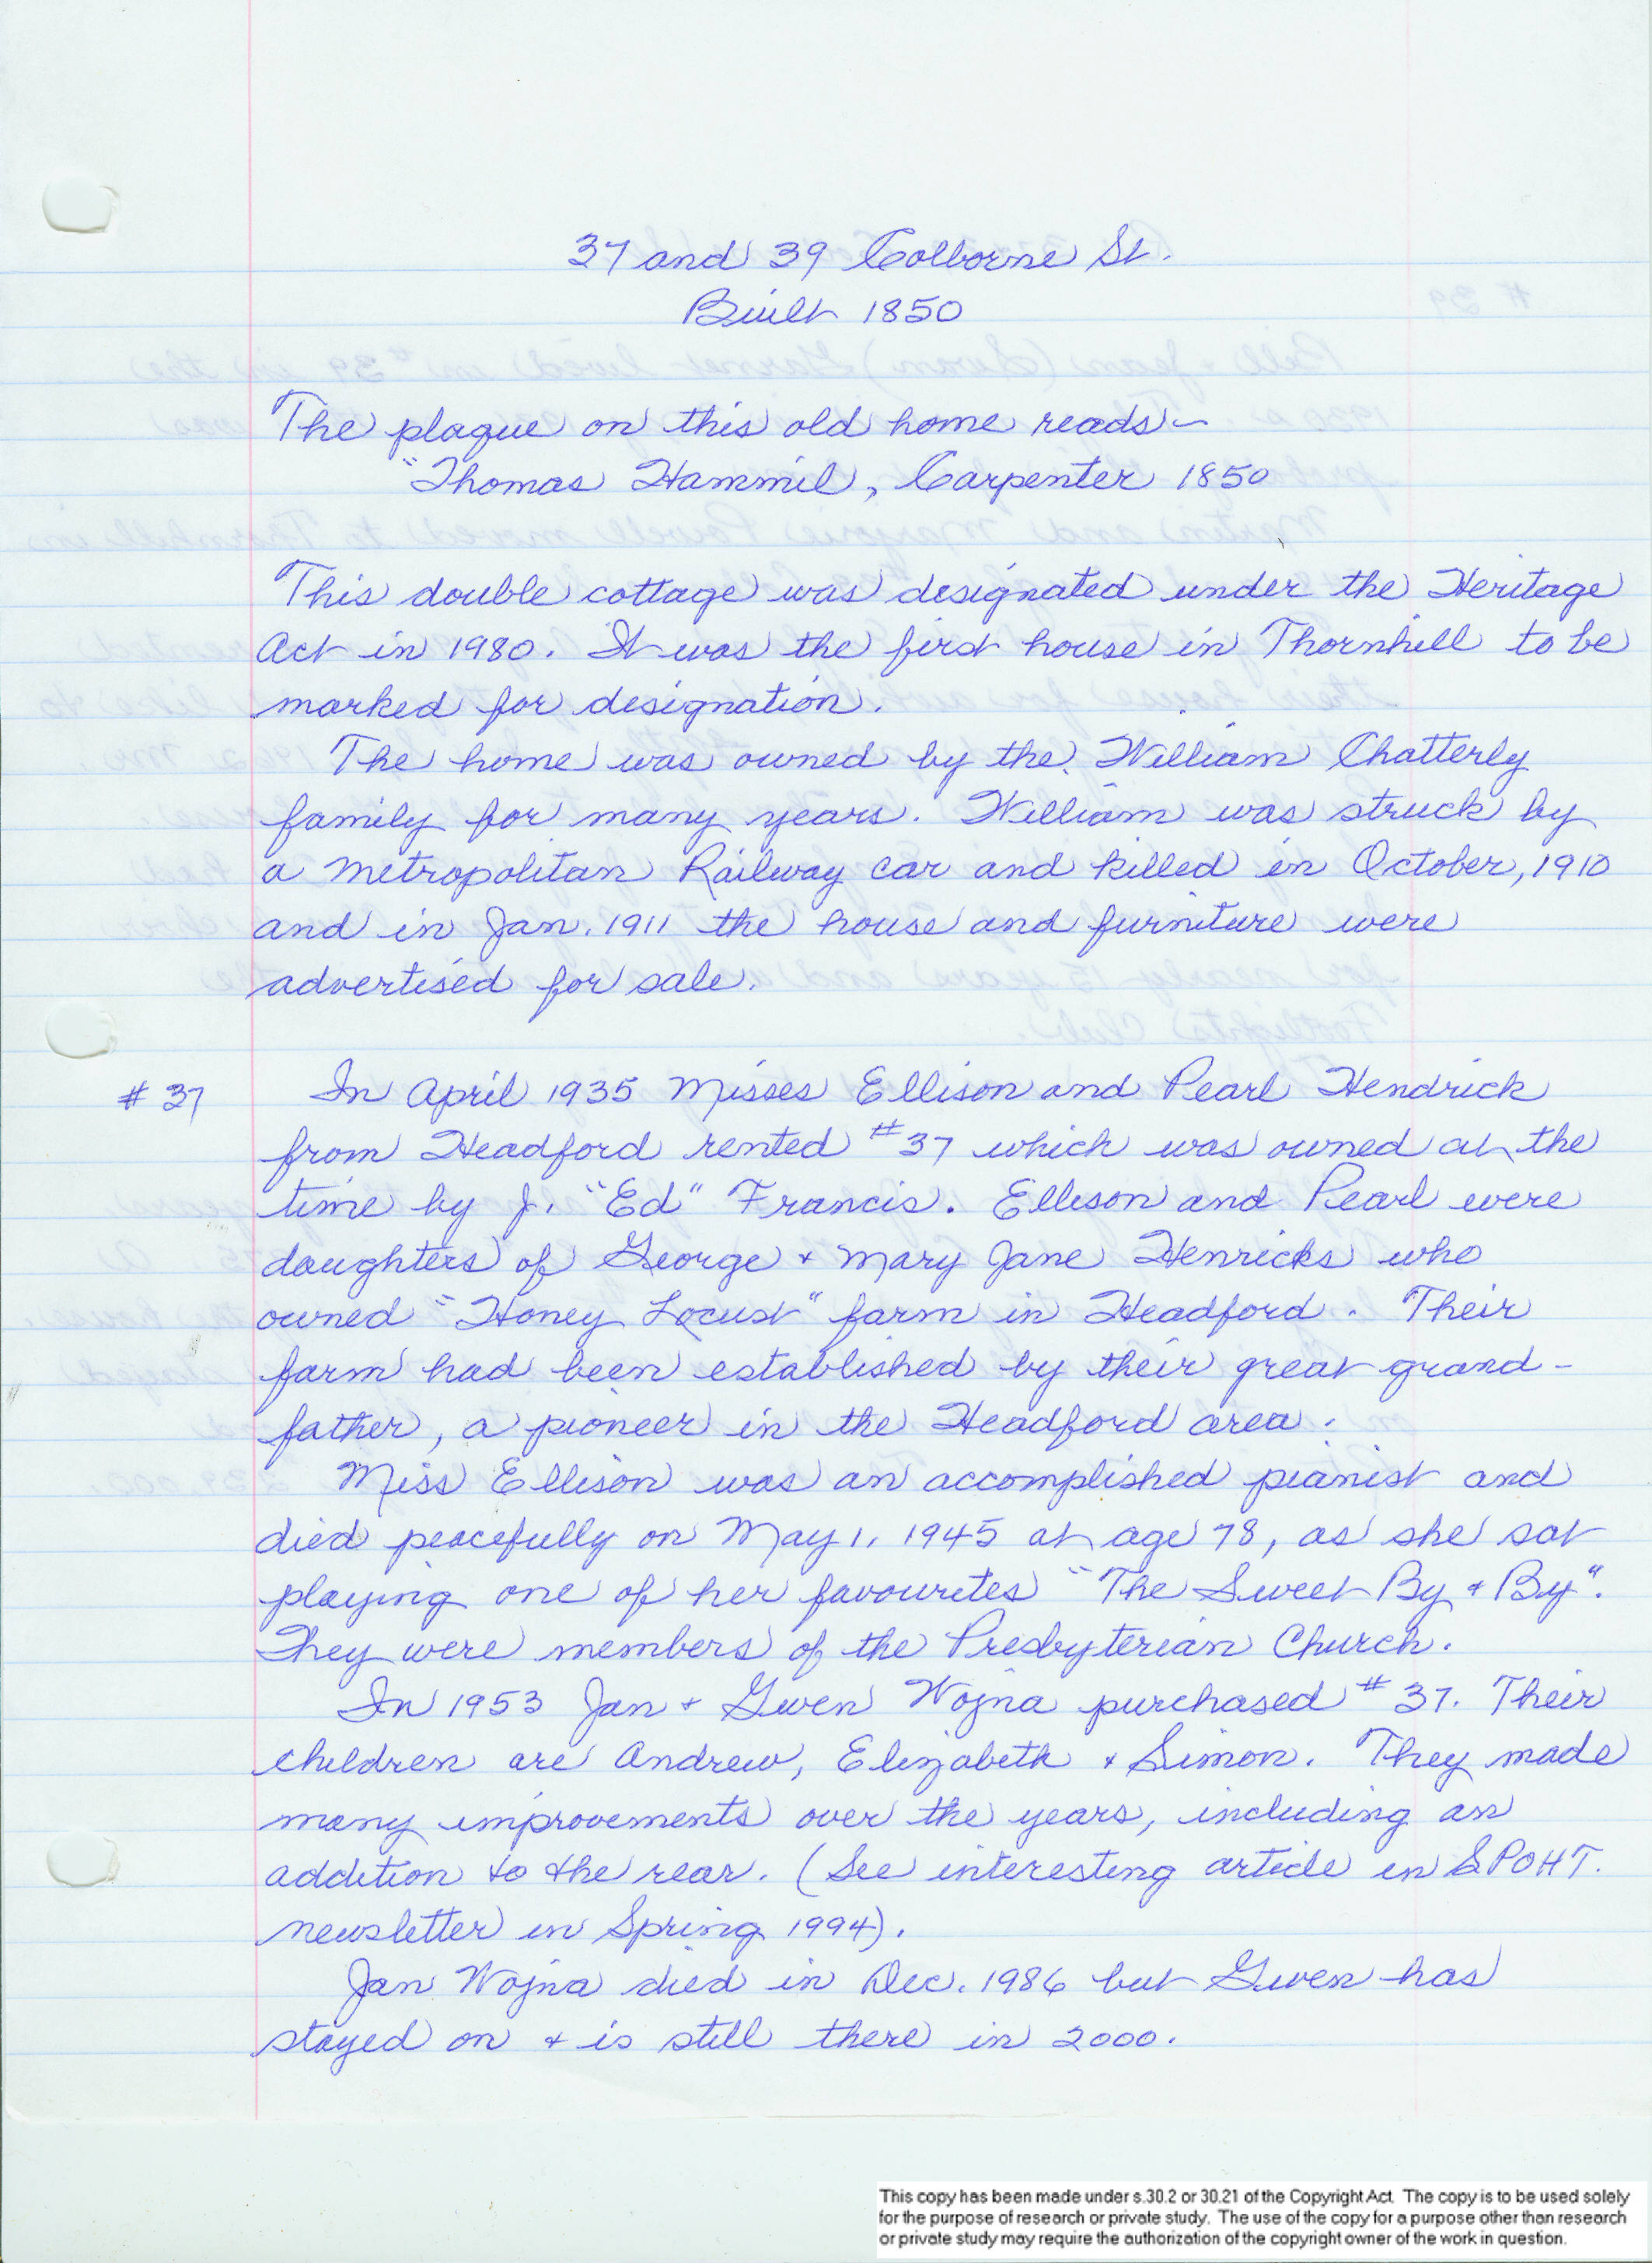 37 and 39 Colborne St.
Built 1850
The plaque on this old home reads -
"Thomas Hammil, Carpenter 1850
This double cottage was designated under the Heritage
Act in 1980. It was the first house in Thornhill to be
marked for designation.
The home was owned by the William Chatterly
family for many years. William was struck by
a Metropolitan Railway car and killed in October, 1910
and in Jan. 1911 the house and furniture were
advertised for sale.
# 37 In April 1935 Misses Ellison and Pearl Hendrick
from Headford rented #37 which was owned at the
time by J. "Ed" Francis. Ellison and Pearl were
daughters of George + Mary Jane Henricks who
owned "Honey Locust" farm in Headford. Their
farm had been established by their great grand-
father, a pioneer in the Headford area.
Miss Ellison was an accomplished pianist and
died peacefully on May 1, 1945 at age 78, as she sat
playing one of her favourites "The Sweet By + By".
They were members of the Presbyterian Church.
In 1953 Jan + Gwen Wojna purchased #37. Their
children are Andrew, Elizabeth + Simon. They made
many improvements over the years, including an
addition to the rear. (See interesting article in SPOHT.
newsletter in Spring 1994).
Jan Wojna died in Dec. 1986 but Gwen has
stayed on + is still there in 2000.
This copy has been made under s.30.2 or 30.21 of the Copyright Act. The copy is to be used solely
for the purpose of research or private study. The use of the copy for a purpose other than research
or private study may require the authorization of the copyright owner of the work in question.